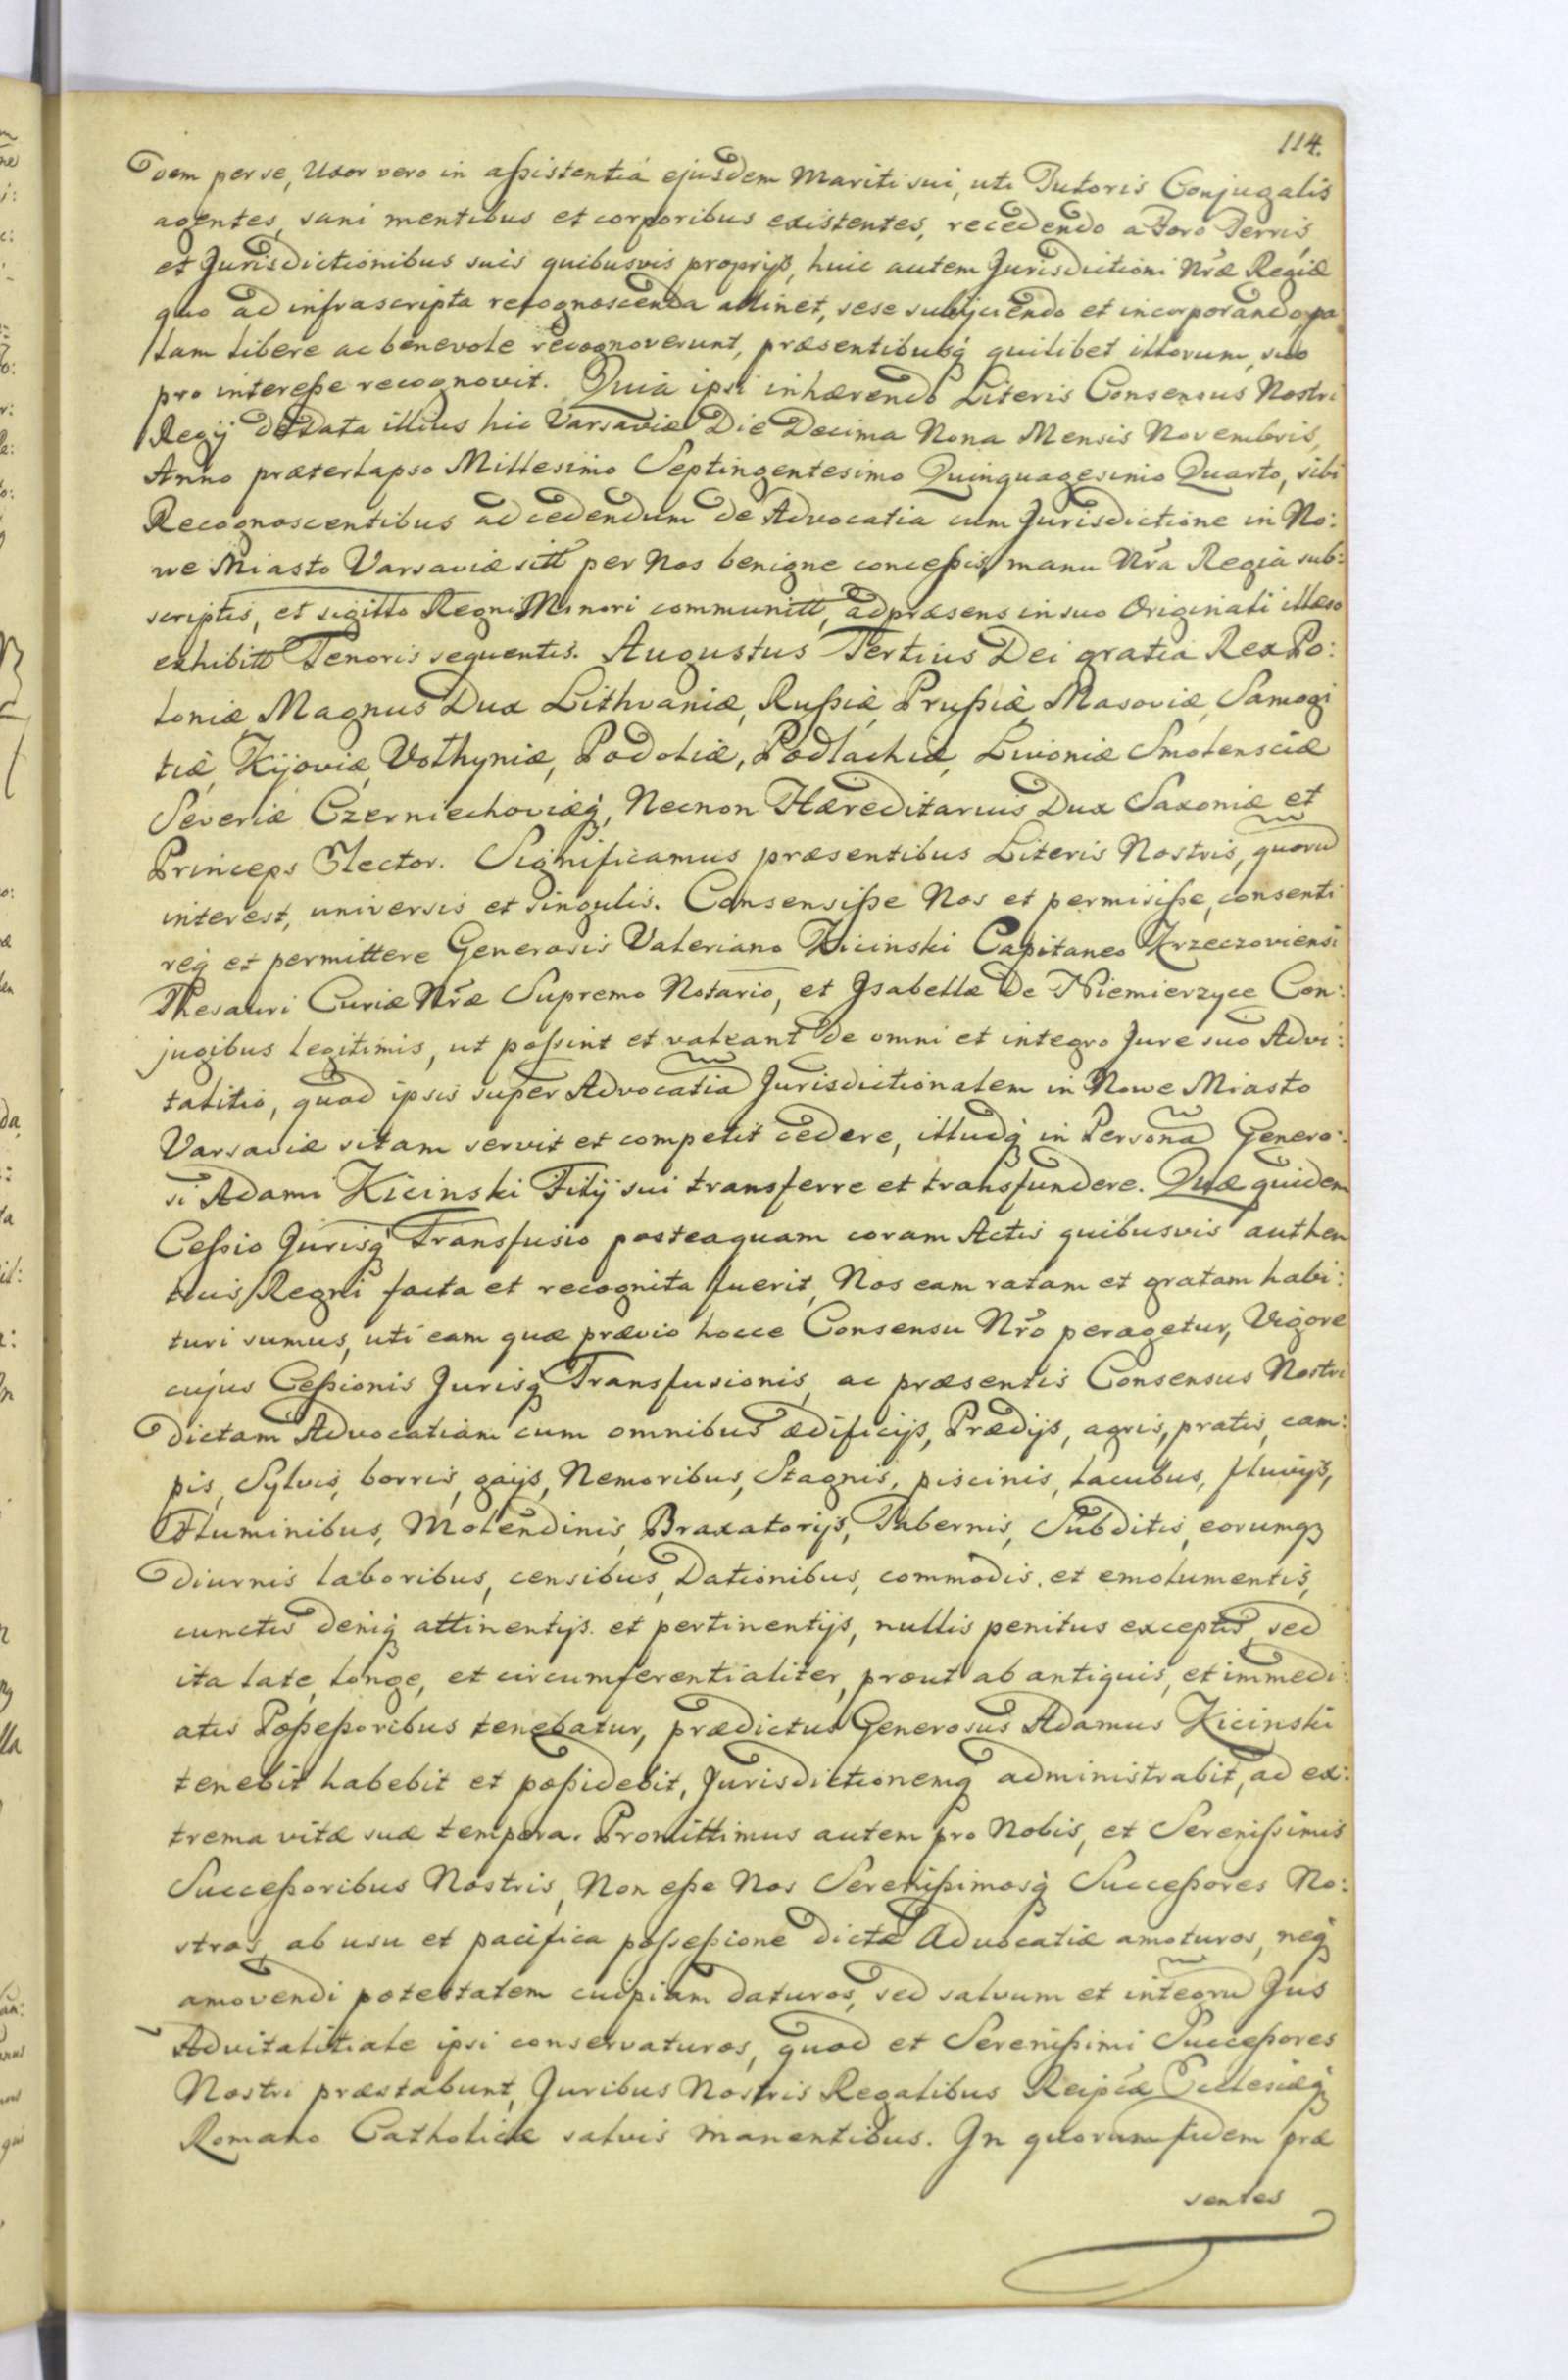 114.
dem per se, Uxor vero in assistentia ejusdem Mariti sui, uti Tutoris Conjugalis
agentes, sani mentibus et corporibus existentes, recedendo a Foro Terris,
et Jurisdictionibus suis quibusvis proprijs, huic autem Jurisdictioni Nrae Regiae
quo ad infrascripta recognoscenda attinet, sese subijciendo et incorporando, pa
lam libere ac benevole recognoverunt, praesentibusq quilibet illorum, suo
pro interesse recognovit. Quia ipsi inhaerendo Literis Consensus Nostri
Regij de Data illius hic Varsaviae Die Decima Nona Mensis Novembris,
Anno praeterlapso Millesimo Septingentesimo Quinquagesimo Quarto, sibi
Recognoscentibus ad cedendum de Advocatia cum Jurisdictione in No:
we Miasto Varsaviae sitt per Nos benigne concessis, manu Nra Regia sub:
scriptis, et sigillo Regni Minori communitt, ad praesens in suo Originali illaeso
exhibitt Tenoris sequentis. Augustus Tertius Dei gratia Rex Po:
loniae Magnus Dux Lithvaniae, Russiae, Prussiae, Masoviae, Samogi
tiae, Kijoviae, Volhyniae, Podoliae, Podlachiae, Livoniae Smolensciae
Severiae Czerniechoviaeq, Necnon Haereditarius Dux Saxoniae et
Princeps Elector. Significamus praesentibus Literis Nostris, quoru
interest, universis et singulis. Consensisse Nos et permisisse, consenti
req et permittere Generosis Valeriano Kicinski Capitaneo Krzeczoviensi
Thesauri Curiae Nrae Supremo Notario, et Isabellae De Niemierzyce Con:
jugibus legitimis, ut possint et valeant de omni et integro Jure suo Advi:
talitio, quod ipsis super Advocatia Jurisdictionalem in Nowe Miasto
Varsaviae sitam servit et competit cedere, illudq in Persona Genero:
si Adami Kicinski Filij sui transferre et transfundere. Quae quidem
Cessio Jurisq Transfusio posteaquam coram Actis quibusvis authen
ticis Regni facta et recognita fuerit, Nos eam ratam et gratam habi:
turi sumus, uti eam quae praevio hocce Consensu Nro peragetur, Vigore
cujus Cessionis Jurisq Transfusionis, ac praesentis Consensus Nostri
dictam Advocatiam cum omnibus aedificijs, Praedijs, agris, pratis, cam:
pis, Sylvis, borris, gaijs, Nemoribus, Stagnis, piscinis, lacubus, fluvijs,
Fluminibus, Molendinis, Braxatorijs, Tabernis, Subditis, eorumq
diurnis laboribus, censibus, Dationibus, commodis. et emolumentis,
cunctis deniq attinentijs. et pertinentijs, nullis penitus exceptis, sed
ita late, longe, et circumferentialiter, prout ab antiquis, et immedi:
atis Possessoribus tenebatur, praedictus Generosus Adamus Kicinski
tenebit habebit et possidebit, Jurisdictionemq administrabit, ad ex:
trema vitae suae tempora. Promittimus autem pro Nobis, et Serenissimis
Successoribus Nostris, Non esse Nos Serenissimosq Successores No:
stros, ab usu et pacifica possessione dictae Advocatiae amoturos, neq
amovendi potestatem cuipiam daturos, sed salvum et integru Jus
Advitalitiale ipsi conservaturos, quod et Serenissimi Successores
Nostri praestabunt, Juribus Nostris Regalibus Reipcae Ecclesiaeq
Romano Catholicae salvis manentibus. In quorum fidem prae
sentes